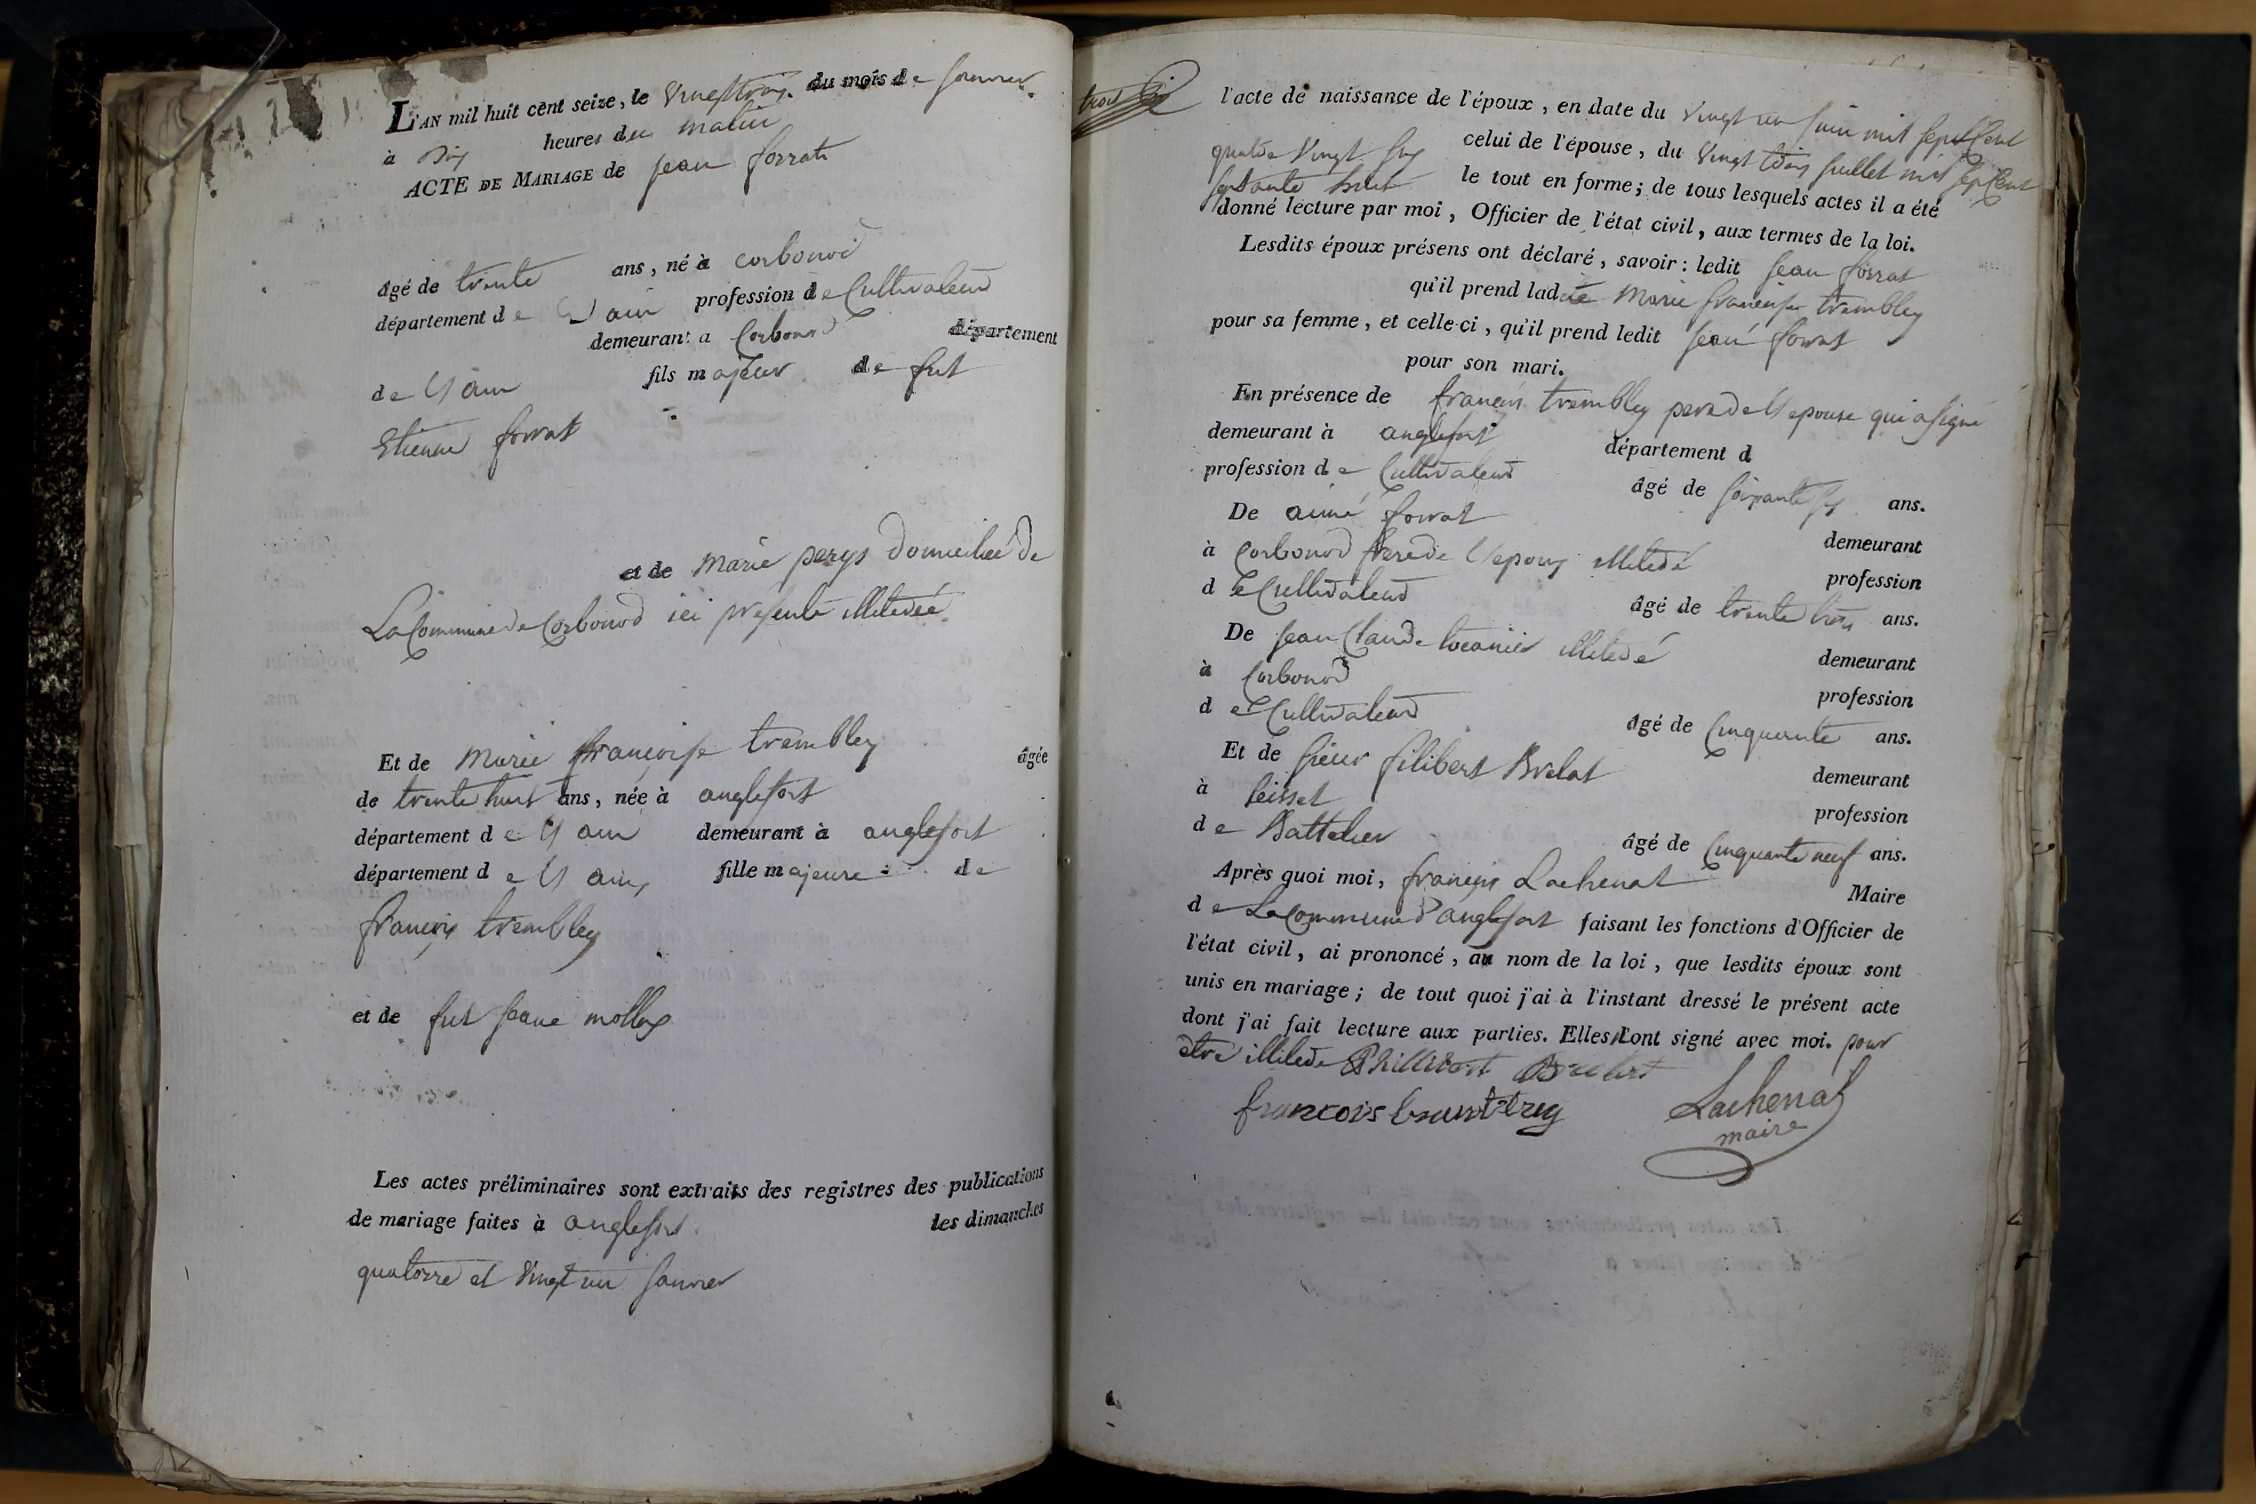 L'AN mil huit cent seize, le vingt trois du mois de janvier
à dix heures du matin
ACTE DE MARIAGE de jean forrat
âgé de trente ans, né à corbonod
département de l'ain profession de Cultivateur
demeurant a Corbonod département
de l'ain fils majeur de fut
Etienne forrat
et de marie perys domiciliée de
La Commune de Corbonod ici presente illiterée
Et de marie françoise trembley âgée
de trente huit ans, née à anglefort
département de l'ain demeurant à anglefort
département de l'ain, fille majeure de
françois trembley
et de fut jeane mollex
Les actes préliminaires sont extraits des registres des publications
de mariage faites à anglefort les dimanches
quatorze et vingt un janvier
trois
l'acte de naissance de l'époux, en date du vingt un juin mil sept Cent
quatre vingt six celui de l'épouse, du vingt trois juillet mil sept Cent
septante huit le tout en forme; de tous lesquels actes il a été
donné lecture par moi, Officier de l'état civil, aux termes de la loi.
Lesdits époux présens ont déclaré, savoir: ledit jean forrat
qu'il prend ladite marie françoise trembley
pour sa femme, et celle-ci, qu'il prend ledit jean forrat
pour son mari.
En présence de françois trembley pere de l'epouse qui a signé
demeurant à anglefort département d
profession de Cultivateur âgé de soixante six ans.
De aimé forrat demeurant
à Corbonod frere de l'epoux illiteré profession
de Cultivateur âgé de trente trois ans.
De jean Claude tocanier illiteré demeurant
à Corbonod profession
de Cultivateur âgé de Cinquante ans.
Et de sieur filibert Brelat demeurant
à seisset profession
de Battelier âgé de Cinquante neuf ans.
Après quoi moi, françois Lachenal Maire
de La Commune d'anglefort faisant les fonctions d'Officier de
l'état civil, ai prononcé, au nom de la loi, que lesdits époux sont
unis en mariage; de tout quoi j'ai à l'instant dressé le présent acte
dont j'ai fait lecture aux parties. Elles l'ont signé avec moi. pour
etre illiteré Phillibert
francois
Lachenal
maire